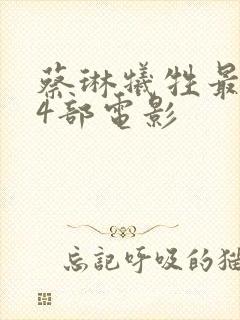 蔡琳犠牲最
4部電影
忘記呼吸的猫